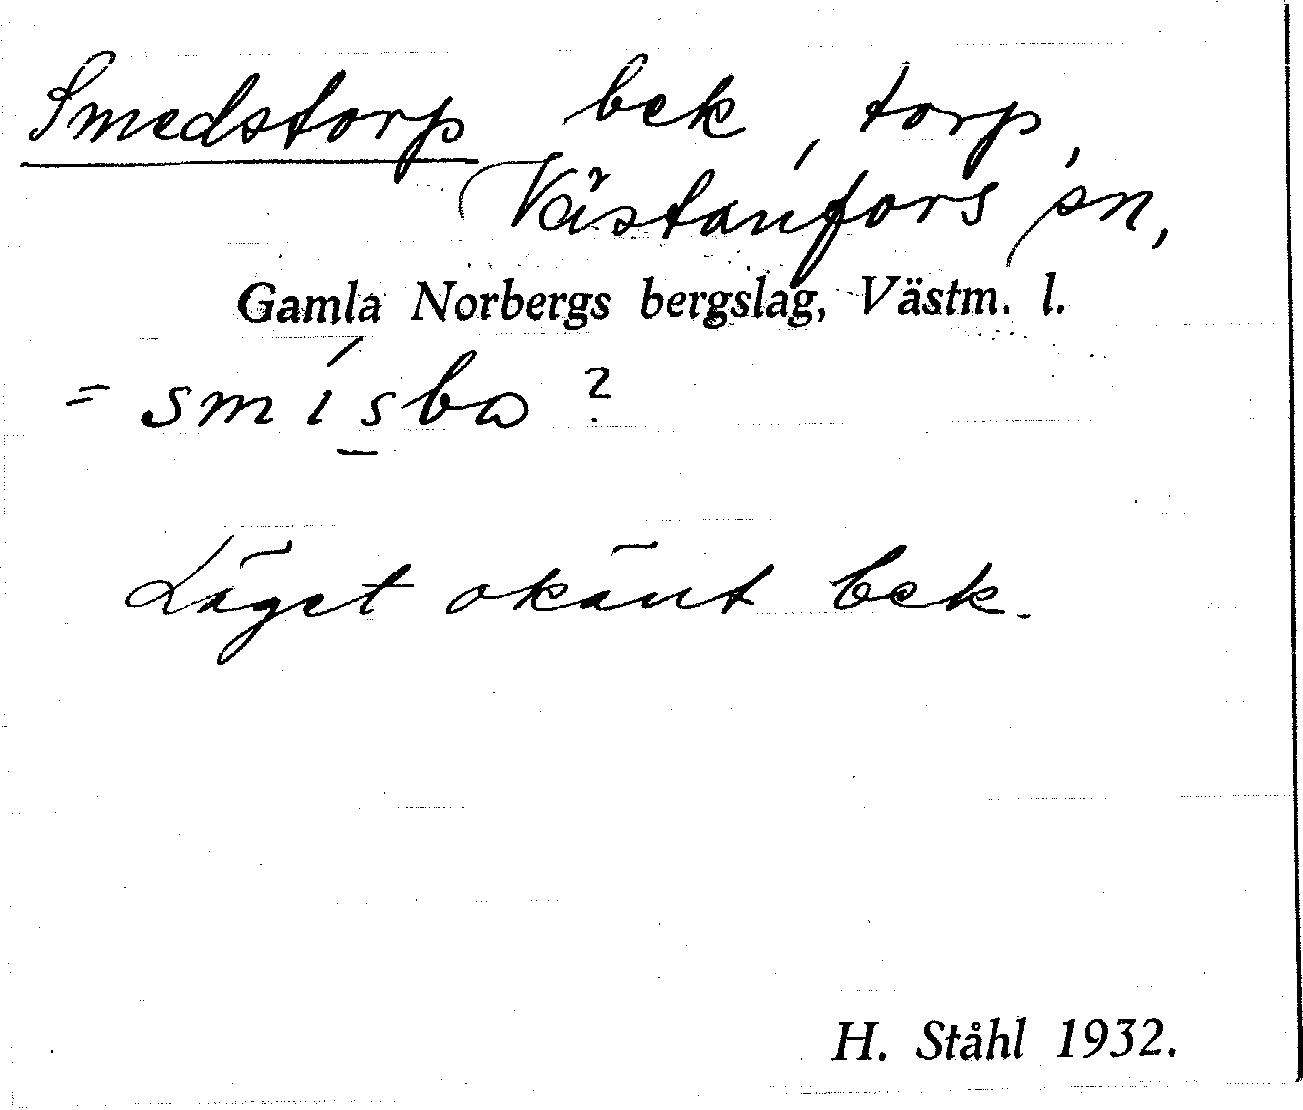 Smedstorp bek, torp,
(Västanfors sn,
Gamla Norbergs bergslag, Västm. l.
= smísba?
Läget okänt bek.
H. Ståhl 1932.